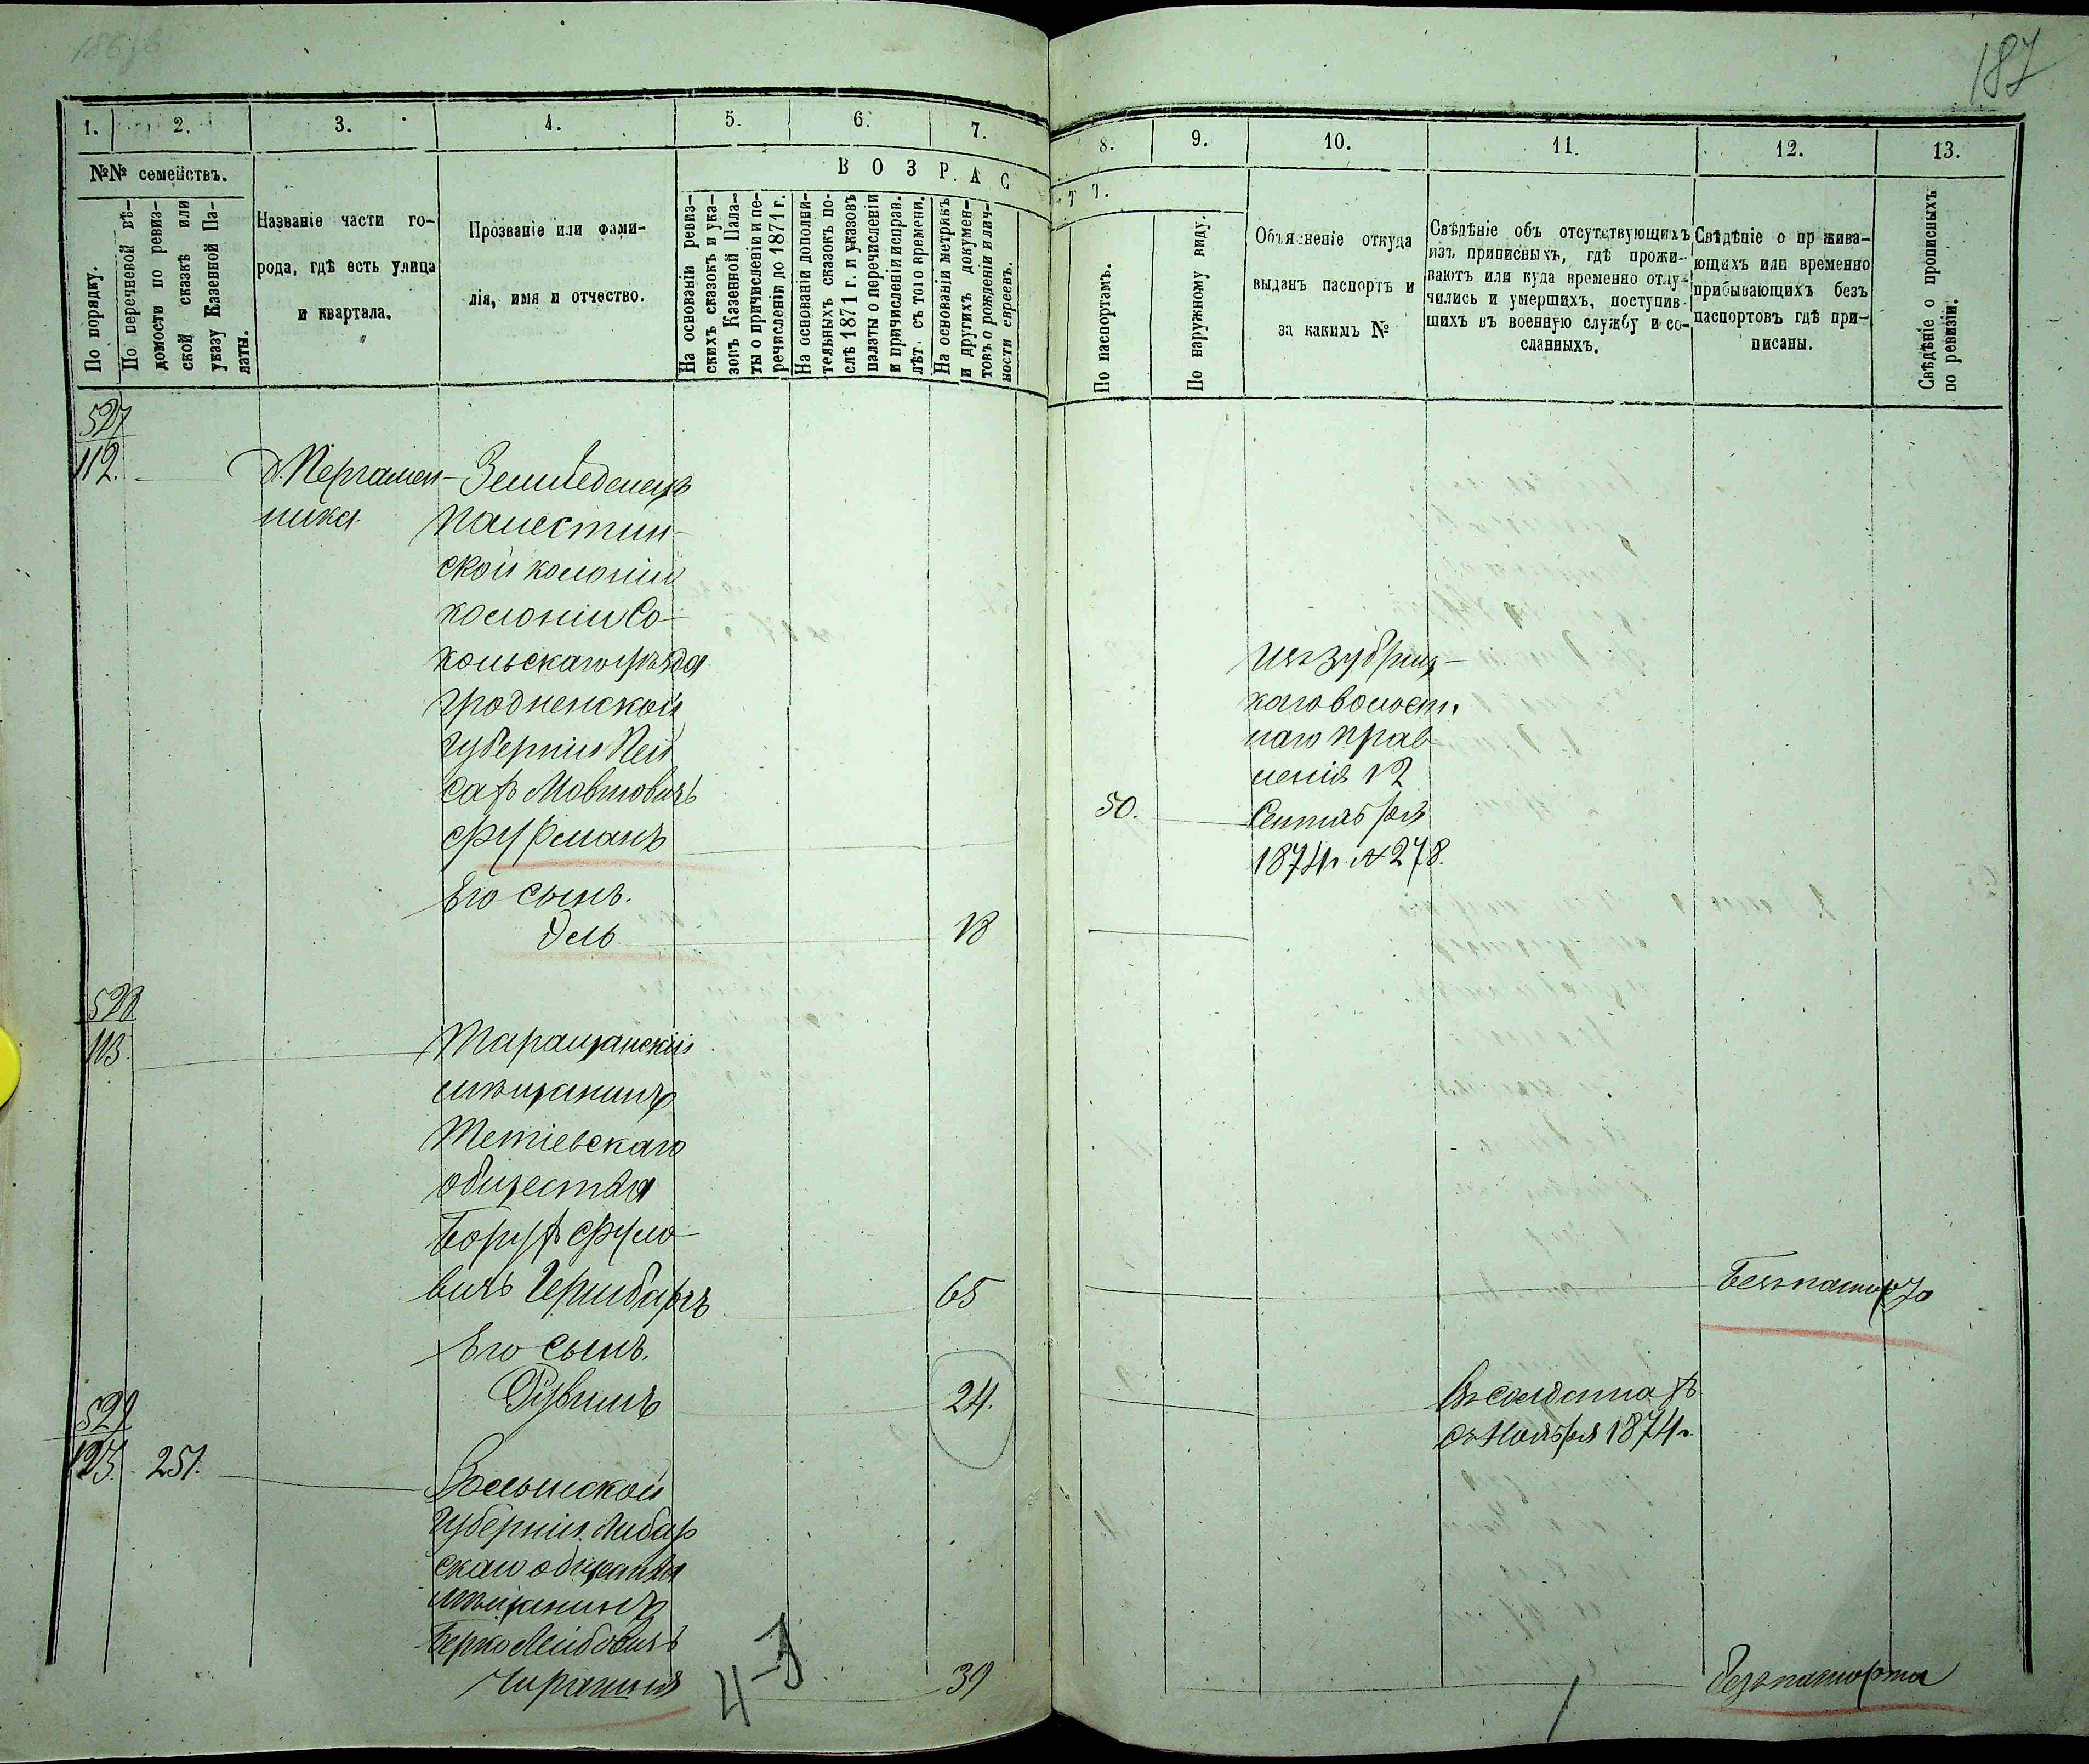 186/б
187
1.
2.
3.
4.
5.
6.
7.
8.
9.
10.
11.
12.
13.
№№ семействъ.
В О З Р А С
Т Ъ.
По порядку.
По перечневой вѣ-
домости по ревиз-
ской сказкѣ или
указу Казенной Па-
латы.
Названіе части го-
рода, гдѣ есть улица
и квартала.
Прозваніе или фами-
лія, имя и отчество.
На основаніи ревиз-
скихъ сказокъ и ука-
зовъ Казенной Пала-
ты о причисленіи и пе-
речисленіи до 1871 г.
На основаніи дополни-
тельныхъ сказокъ по-
слѣ 1871 г. и указовъ
палаты о перечисленіи
и причисленіи исправ.
лѣт. съ того времени.
На основаніи метрикъ
и другихъ докумен-
товъ о рожденіи и лич-
ности евреевъ.
По паспортамъ.
По наружному виду.
Объясненіе откуда
выданъ паспортъ и
за какимъ №
Свѣдѣніе объ отсутствующихъ
изъ приписныхъ, гдѣ прожи-
ваютъ или куда временно отлу-
чились и умершихъ, поступив-
шихъ въ военную службу и со-
сланныхъ.
Свѣдѣніе о прожива-
ющихъ или временно
прибывающихъ безъ
паспортовъ гдѣ при-
писаны.
Свѣдѣніе о прописныхъ
по ревизіи.
527
112.
д. Пергамен-
ника
Земледелецъ
Палестин-
ской колоніи
колоніи Со-
кольскаго уѣзда
Гродненской
Губерніи Пей
сахъ Мовшовичъ
Фурманъ
50.
Изъ Зубриц-
каго волост.
наго прав
ленія 12
Сентября
1874 г. № 278.
Его сынъ.
Эль
18
528
113.
Таращанскій
мѣщанинъ
Тетіевскаго
общества
Борухъ Сруло-
вичъ Гершбергъ
65
Безъ паспорта
Его сынъ.
Рувинъ
24.
Въ солдатахъ
съ Ноября 1874 г.
529
123. 251.
Волынской
Губерніи Любар
скаго общества
мѣщанинъ
Берко Лейбовичъ
39
безъ паспорта